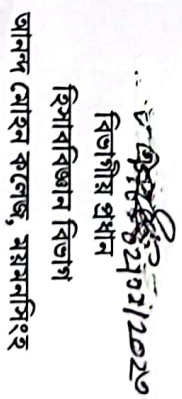 বিভাগীয় প্রধান
হিসাববিজ্ঞান বিভাগ
আনন্দ মোহন কলেজ, ময়মনসিংহ